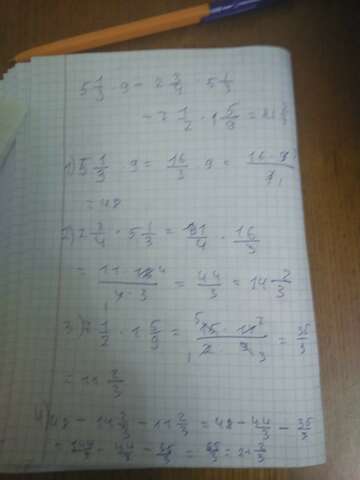 5 1/3 · 9 - 2 3/4 · 5 1/3
- 7 1/2 · 1 5/9 = 21 2/3
1) 5 1/3 · 9 = 16/3 · 9 = 16 · 9/
= 48
2) 2 3/4 · 5 1/3 = 11/4 · 16/3
= 11 · 16 4/4 · 3 = 44/3 = 14 2/3
3) 7 1/2 · 1 5/9 = 5 15 · 14 7/1 2 · 9 3 = 35/3
= 11 2/3
4) 48 - 14 2/3 - 11 2/3 = 48 - 44/3 - 35/3
= 144/3 - 44/3 - 35/3 = 65/3 = 21 2/3